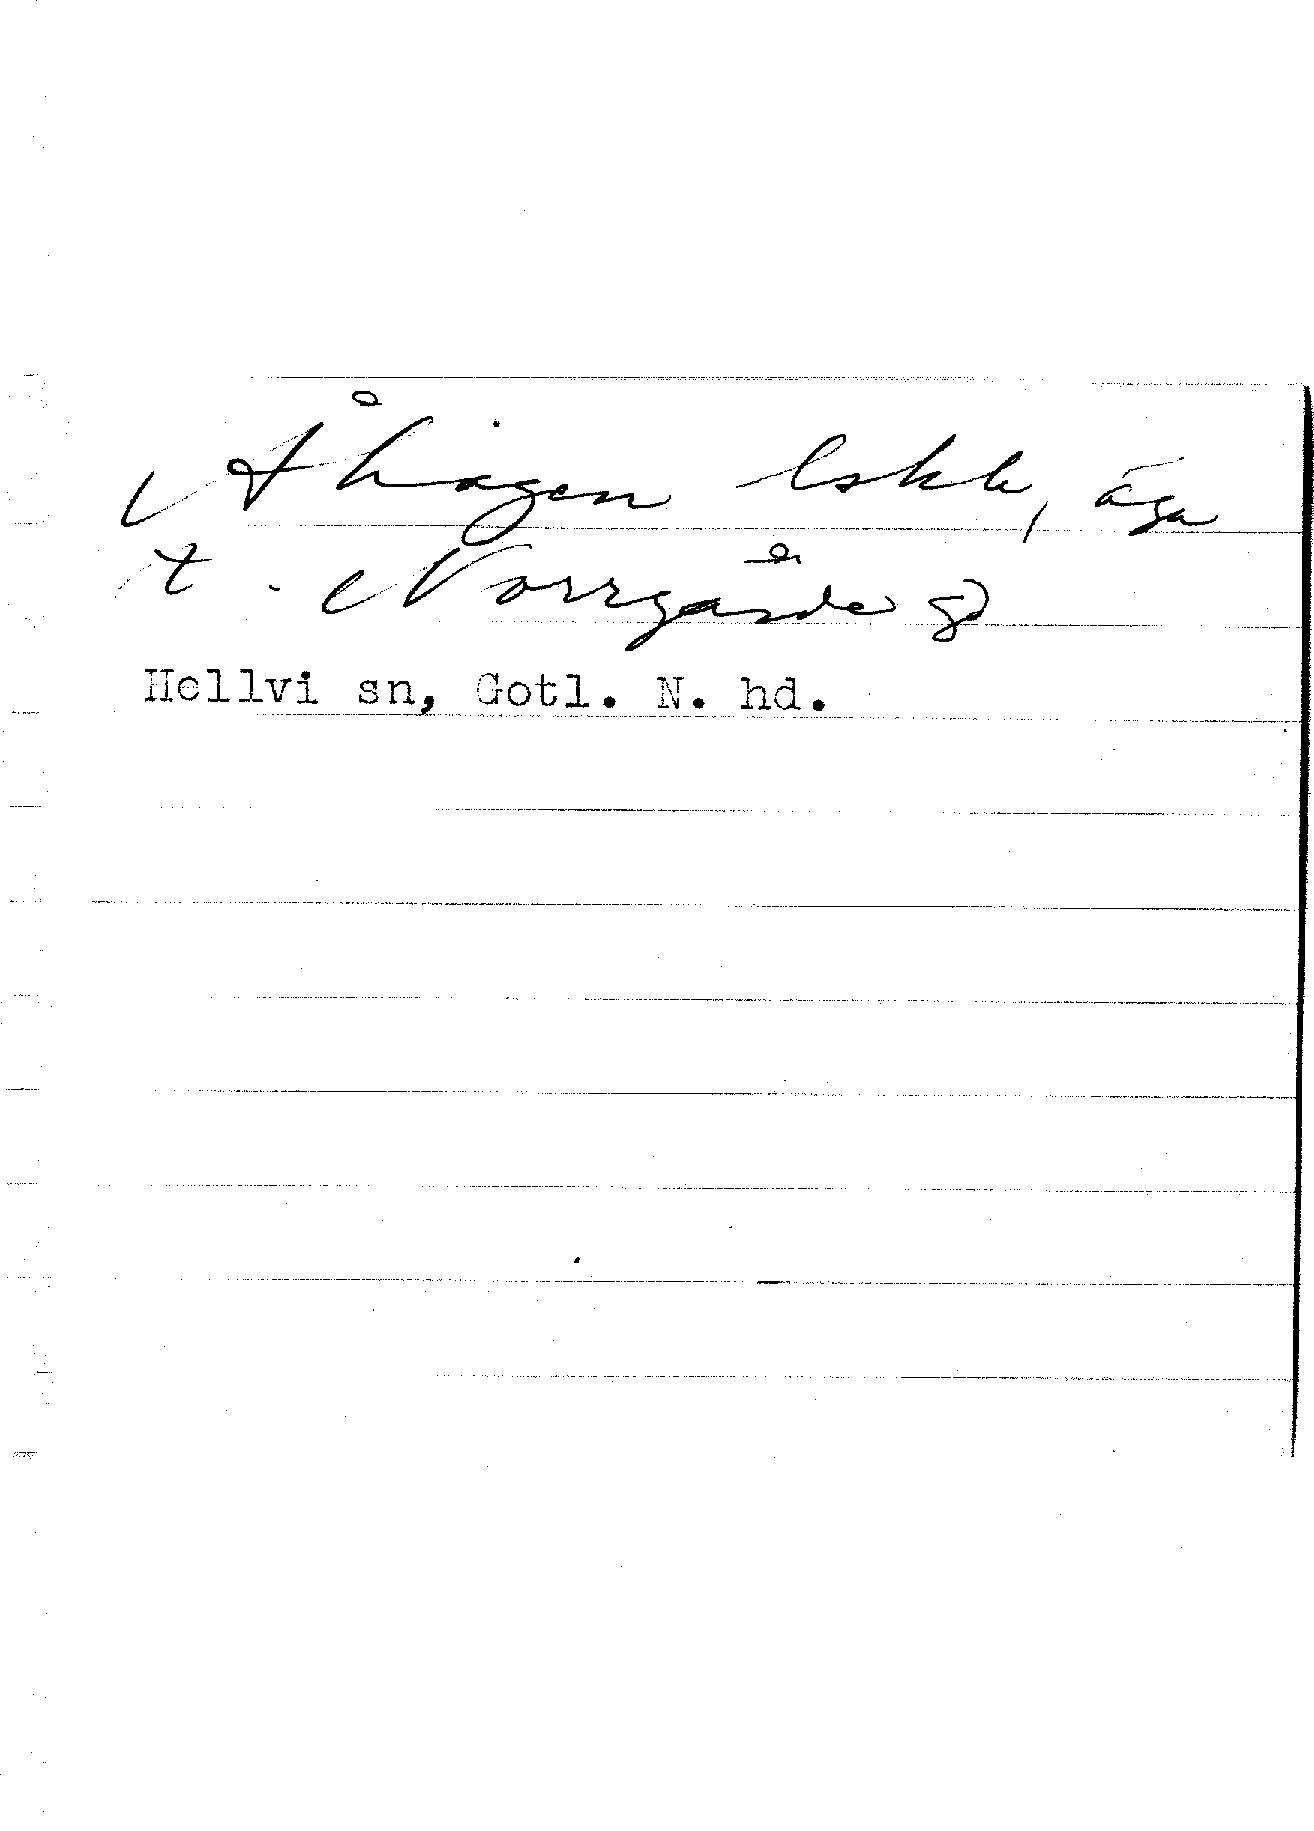 Åhagen lskh, äga
t. Norrgårde gd
Hellvi sn, Gotl. N. hd.